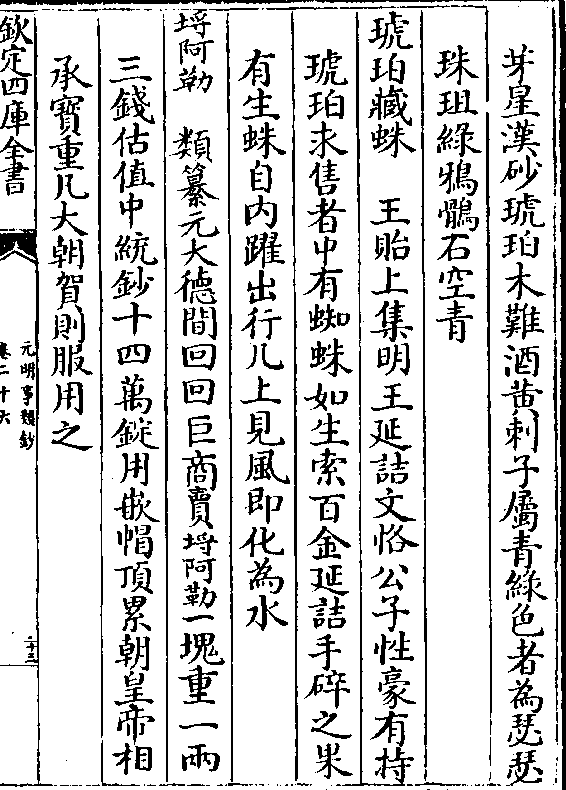 芽星漢砂琥珀木難酒黄刺子屬青綠色者為瑟瑟
珠珇綠鴉鶻石空青
琥珀藏蛛　王貽上集明王延喆文恪公子性豪有持
琥珀求售者中有蜘蛛如生索百金延喆手碎之果
有生蛛自内躍出行几上見風即化為水
埒阿勒　類纂元大徳間回回巨商賣埒阿勒一塊重一兩
三錢估值中統鈔十四萬錠用嵌帽頂累朝皇帝相
承寶重凡大朝賀則服用之
欽定四庫全書
元明事類鈔
卷二十六
二十三